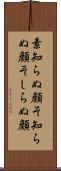 素知らぬ顔そ知ら
ぬ顔そしらぬ顔